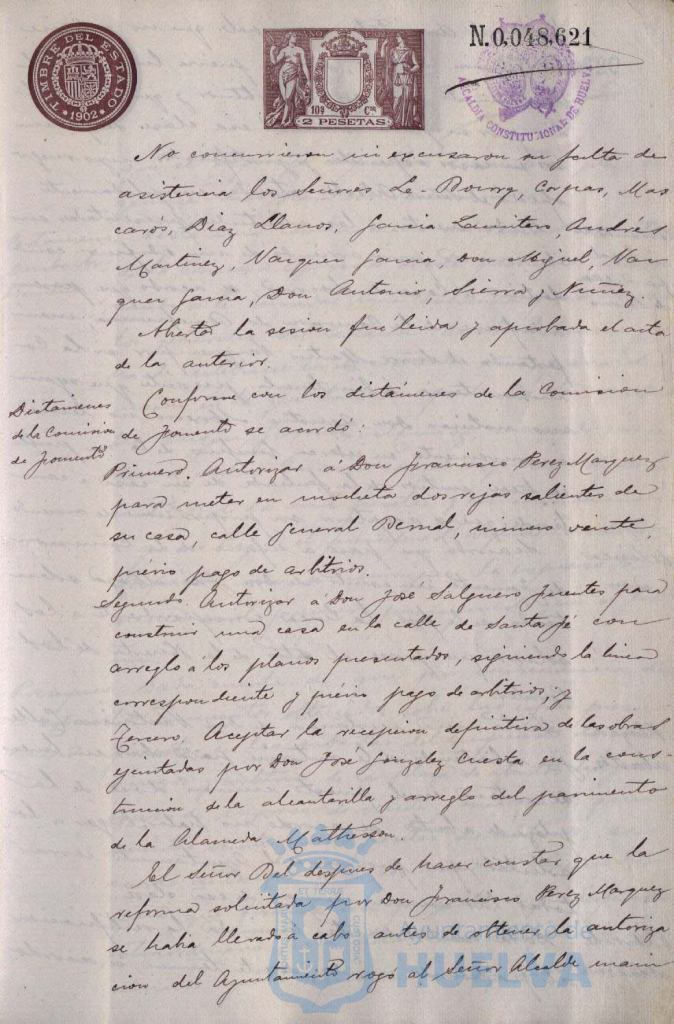 TIMBRE DEL ESTADO
*1902*
AÑO 1902
10ª Cse
2 PESETAS
N.0,048,621
ALCALDIA CONSTITUCIONAL DE HUELVA
No concurrieron ni excusaron su falta de
asistencia los Señores Le-Bourg, Corpas, Mas
carós, Diaz Llanos, Garcia Ramitero, Andrés
Martinez, Vazquez Garcia, Don Miguel, Vaz
quez Garcia, Don Antonio, Sierra y Nuñez.
Abierta la sesion fue leida y aprobada el acta
de la anterior.
Dictámenes
de la Comision
de Fomento
Conforme con los dictámenes de la Comision
de Fomento se acordó:
Primero. Autorizar á Don Francisco Perez Marquez
para meter en mocheta dos rejas salientes de
su casa, calle General Bernal, número veinte,
prévio pago de arbitrios.
Segundo. Autorizar á Don José Salguero Fuentes para
construir una casa en la calle de Santa Fé con
arreglo á los planos presentados, siguiendo la linea
correspondiente y prévio pago de arbitrios; y
Tercero. Aceptar la recepcion definitiva de las obras
ejecutadas por Don José Gonzalez Cuesta en la cons-
truccion de la alcantarilla y arreglo del pavimento
de la Alameda Mathesson.
El Señor Bel despues de hacer constar que la
reforma solicitada por Don Francisco Perez Marquez
se habia llevado á cabo antes de obtener la autoriza
cion del Ayuntamiento rogó al Señor Alcalde mani
HUELVA